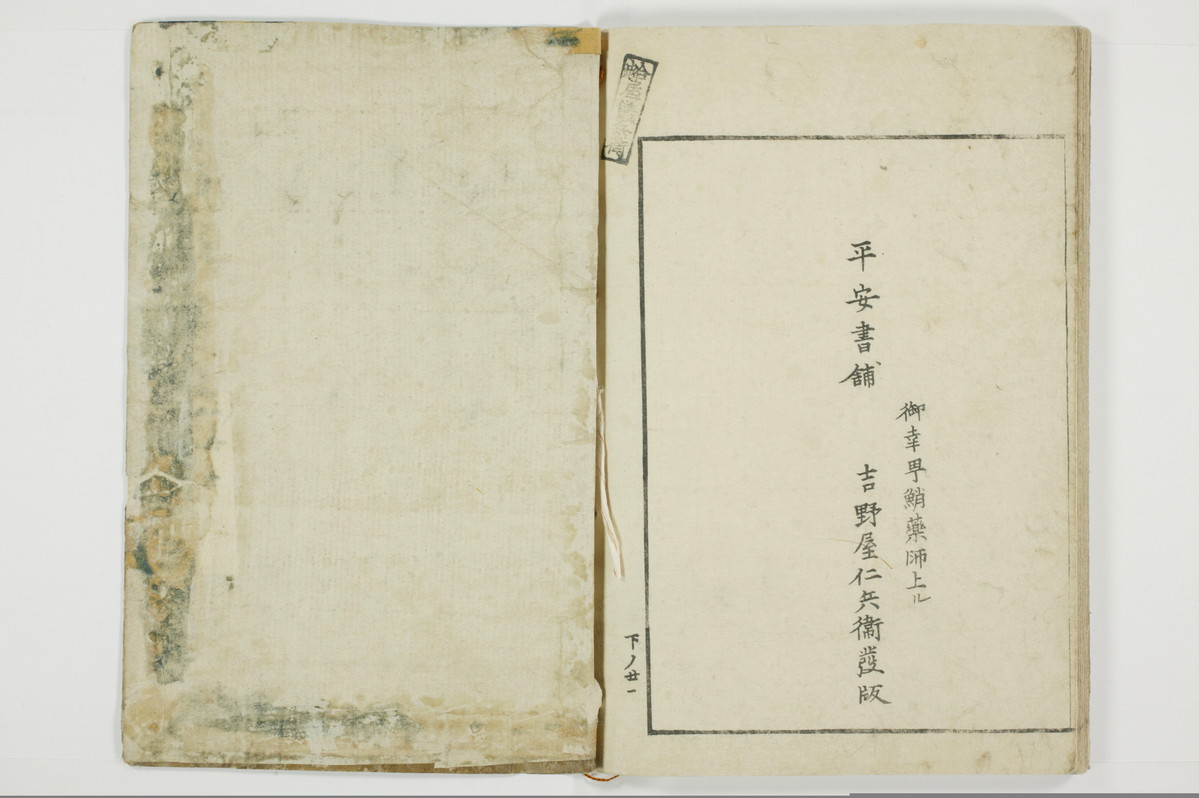 御幸町蛸薬師上ル
平安書舗　吉野屋仁兵衞發版
下ノ廿一